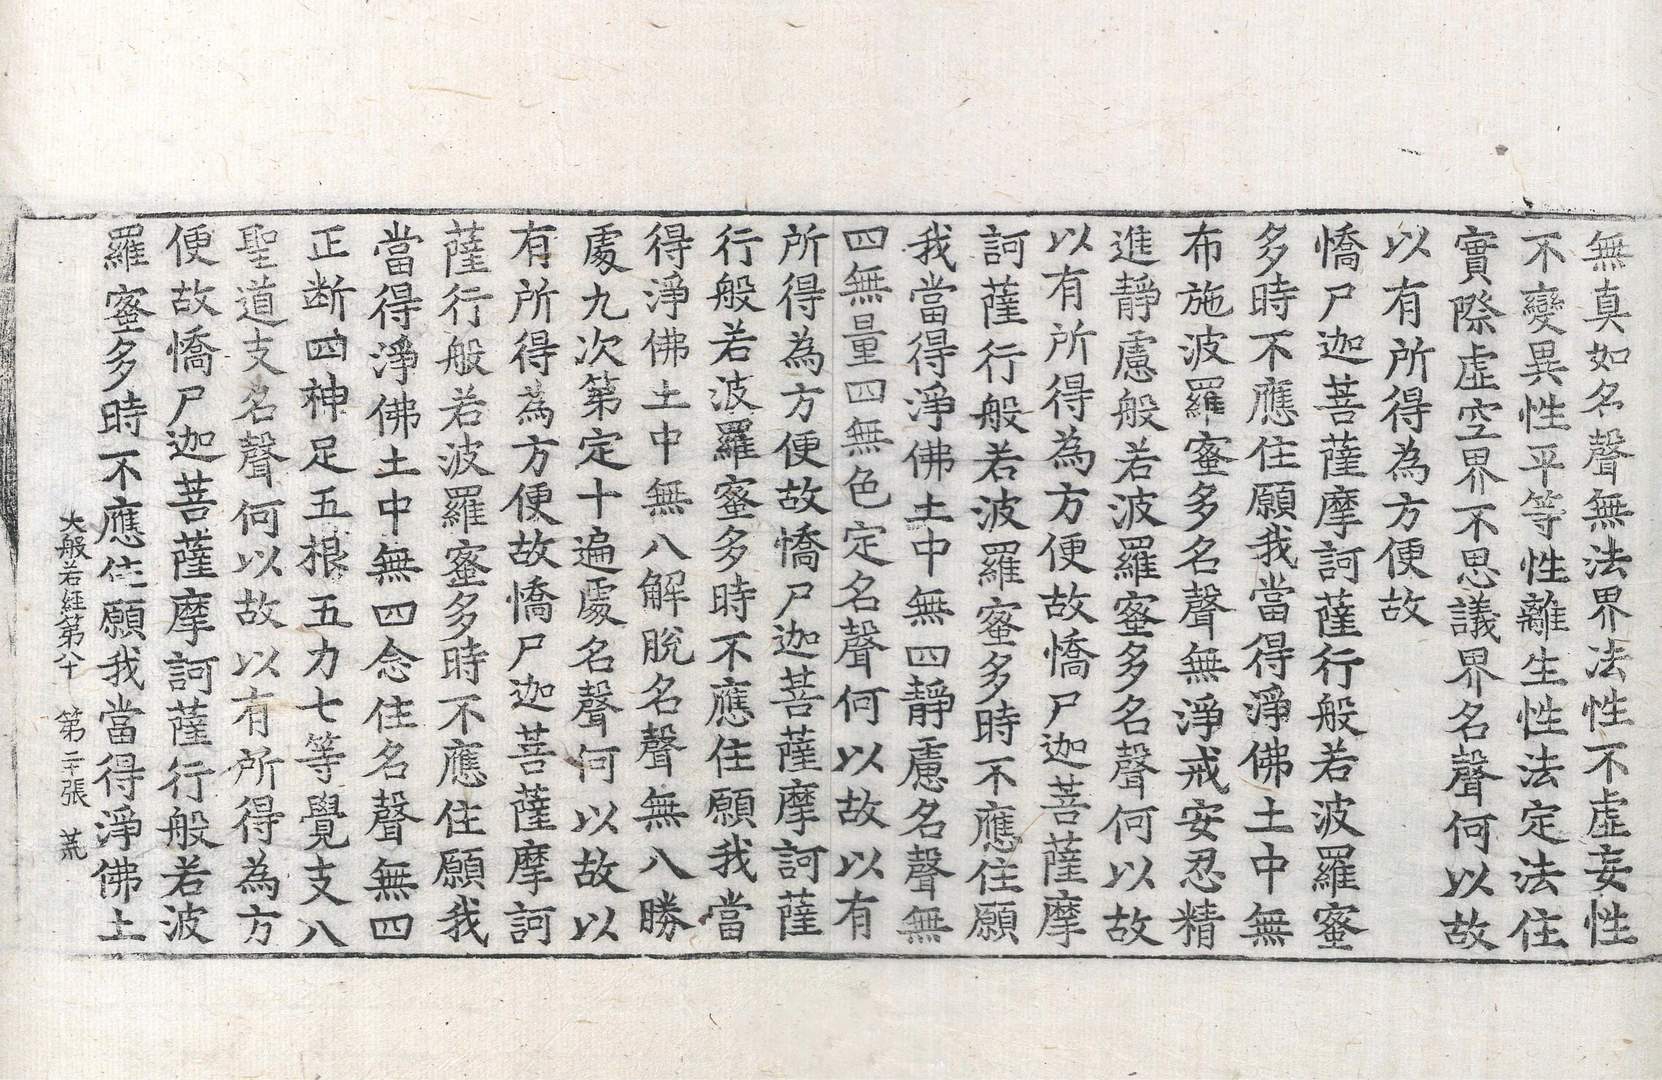 無真如名聲無法界法性不虛妄性
不變異性平等性離生性法定法住
實際虛空界不思議界名聲何以故
以有所得為方便故
憍尸迦菩薩摩訶薩行般若波羅蜜
多時不應住願我當得淨佛土中無
布施波羅蜜多名聲無淨戒安忍精
進靜慮般若波羅蜜多名聲何以故
以有所得為方便故憍尸迦菩薩摩
訶薩行般若波羅蜜多時不應住願
我當得淨佛土中無四靜慮名聲無
四無量四無色定名聲何以故以有
所得為方便故憍尸迦菩薩摩訶薩
行般若波羅蜜多時不應住願我當
得淨佛土中無八解脫名聲無八勝
處九次第定十遍處名聲何以故以
有所得為方便故憍尸迦菩薩摩訶
薩行般若波羅蜜多時不應住願我
當得淨佛土中無四念住名聲無四
正断四神足五根五力七等覺支八
聖道支名聲何以故以有所得為方
便故憍尸迦菩薩摩訶薩行般若波
羅蜜多時不應住願我當得淨佛土
大般若経第八十 第二十張 荒